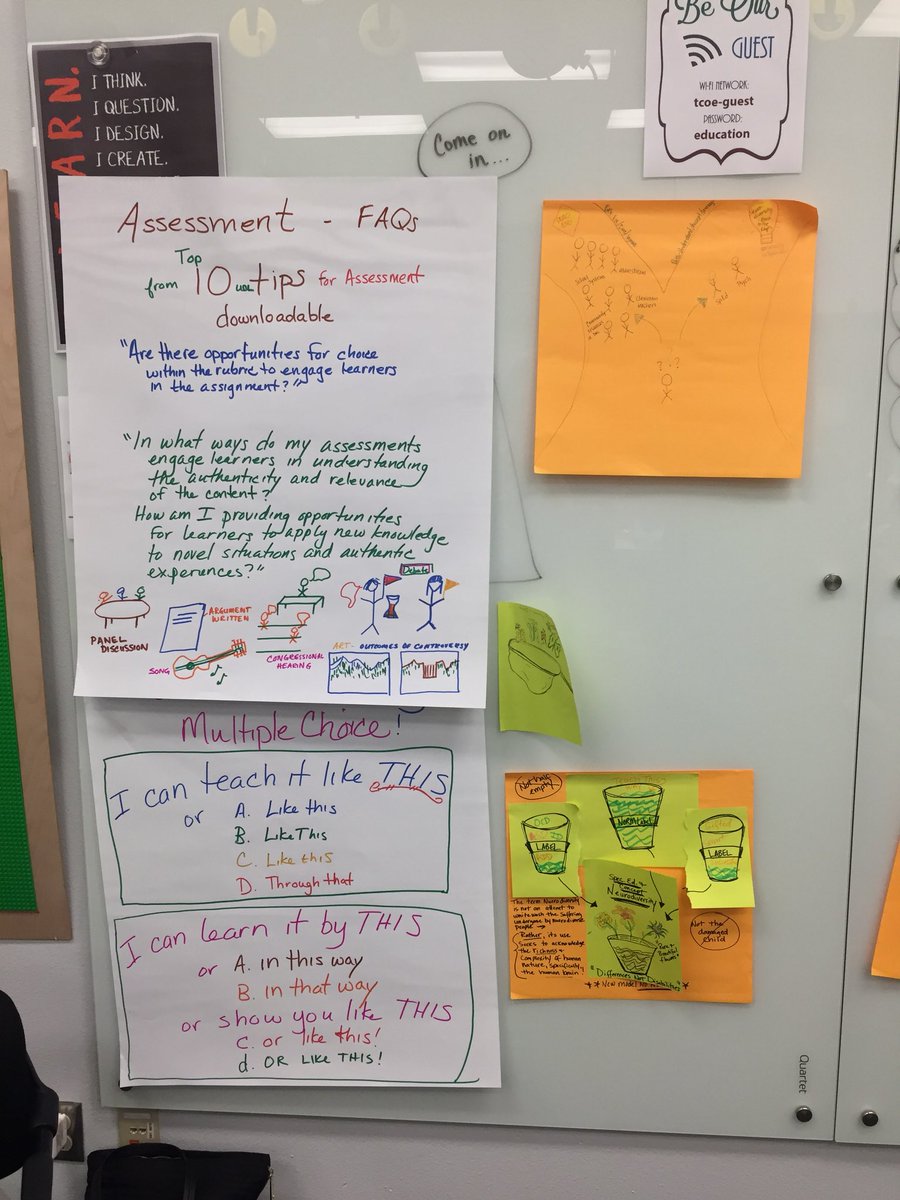 ARN.
I THINK.
I QUESTION.
I DESIGN.
I CREATE.
Be Our
GUEST
WI-FI NETWORK:
tcoe-guest
PASSWORD:
education
Come on
in....
Assessment - FAQs
Top
from 10 UDL tips for Assessment
downloadable
"Are there opportunities for choice
within the rubric to engage learners
in the assignment?"
"In what ways do my assessments
engage learners in understanding
the authenticity and relevance
of the content?
How am I providing opportunities
for learners to apply new knowledge
to novel situations and authentic
experiences?"
Debate
PANEL
DISCUSSION
ARGUMENT
WRITTEN
SONG
CONGRESSIONAL
HEARING
ART - OUTCOMES OF CONTROVERSY
Multiple Choice!
I can teach it like THIS
or A. Like this
B. Like This
C. Like this
D. Through that
I can learn it by THIS
or A. in this way
B. in that way
or show you like THIS
c. or like this!
d. OR LIKE THIS!
classroom
teachers
? . ?
Not half
empty
Teach This
NORM Label
OLD
LABEL
LABEL
Spec. Ed. &
Concept
Neurodiversity
The term Neurodiversity
is not an attempt to
white wash the suffering
undergone by neurodiverse
people →
Rather, its use
seeks to acknowledge
the richness &
complexity of human
nature, specifically
the human brain
Not the
damaged
child
"Differences Not Disabilities"
** New model
Quartet